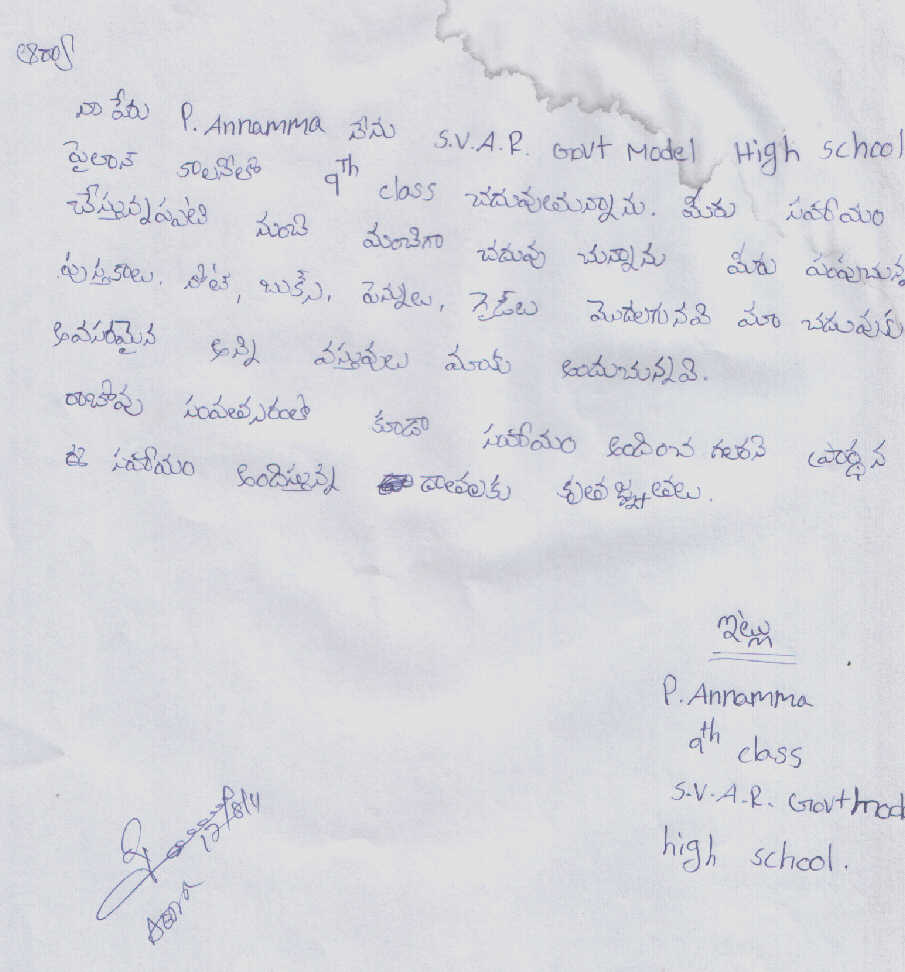 ఆర్యా
నా పేరు P. Annamma నేను S.V.A.R. Govt Model High school
పైలాన్ కాలనీలో 9th class చదువుతున్నాను. మీరు సహాయం
చేస్తున్నప్పటి నుంచి మంచిగా చదువు చున్నాను మీరు పంపుచున్న
పుస్తకాలు, నోట్, బుక్స్, పెన్నులు, గైడ్‌లు మొదలగునవి మా చదువుకు
అవసరమైన అన్ని వస్తువులు మాకు అందుచున్నవి.
రాబోవు సంవత్సరంతో కూడా సహాయం అందించ గలరని ప్రార్ధన
ఈ సహాయం అందిస్తున్న దాతలకు కృతజ్ఞతలు.
ఇట్లు
P. Annamma
9th class
S.V.A.R. Govt mod
high school.
12/8/11